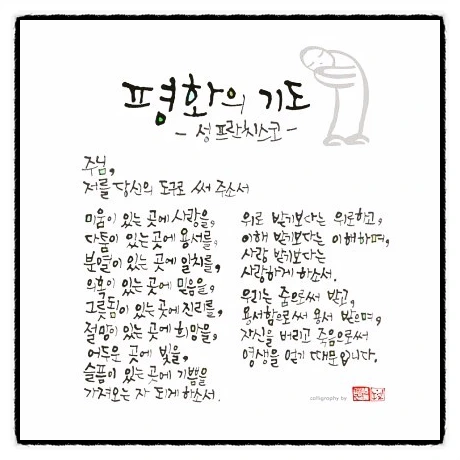 평화의 기도
- 성 프란치스코 -
주님,
저를 당신의 도구로 써 주소서
미움이 있는 곳에 사랑을,
다툼이 있는 곳에 용서를,
분열이 있는 곳에 일치를,
의혹이 있는 곳에 믿음을,
그릇됨이 있는 곳에 진리를,
절망이 있는 곳에 희망을,
어두운 곳에 빛을,
슬픔이 있는 곳에 기쁨을
가져오는 자 되게 하소서.
위로 받기보다는 위로하고,
이해 받기보다는 이해하며,
사랑 받기보다는
사랑하게 하소서.
우리는 줌으로써 받고,
용서함으로써 용서 받으며,
자신을 버리고 죽음으로써
영생을 얻기 때문입니다.
calligraphy by